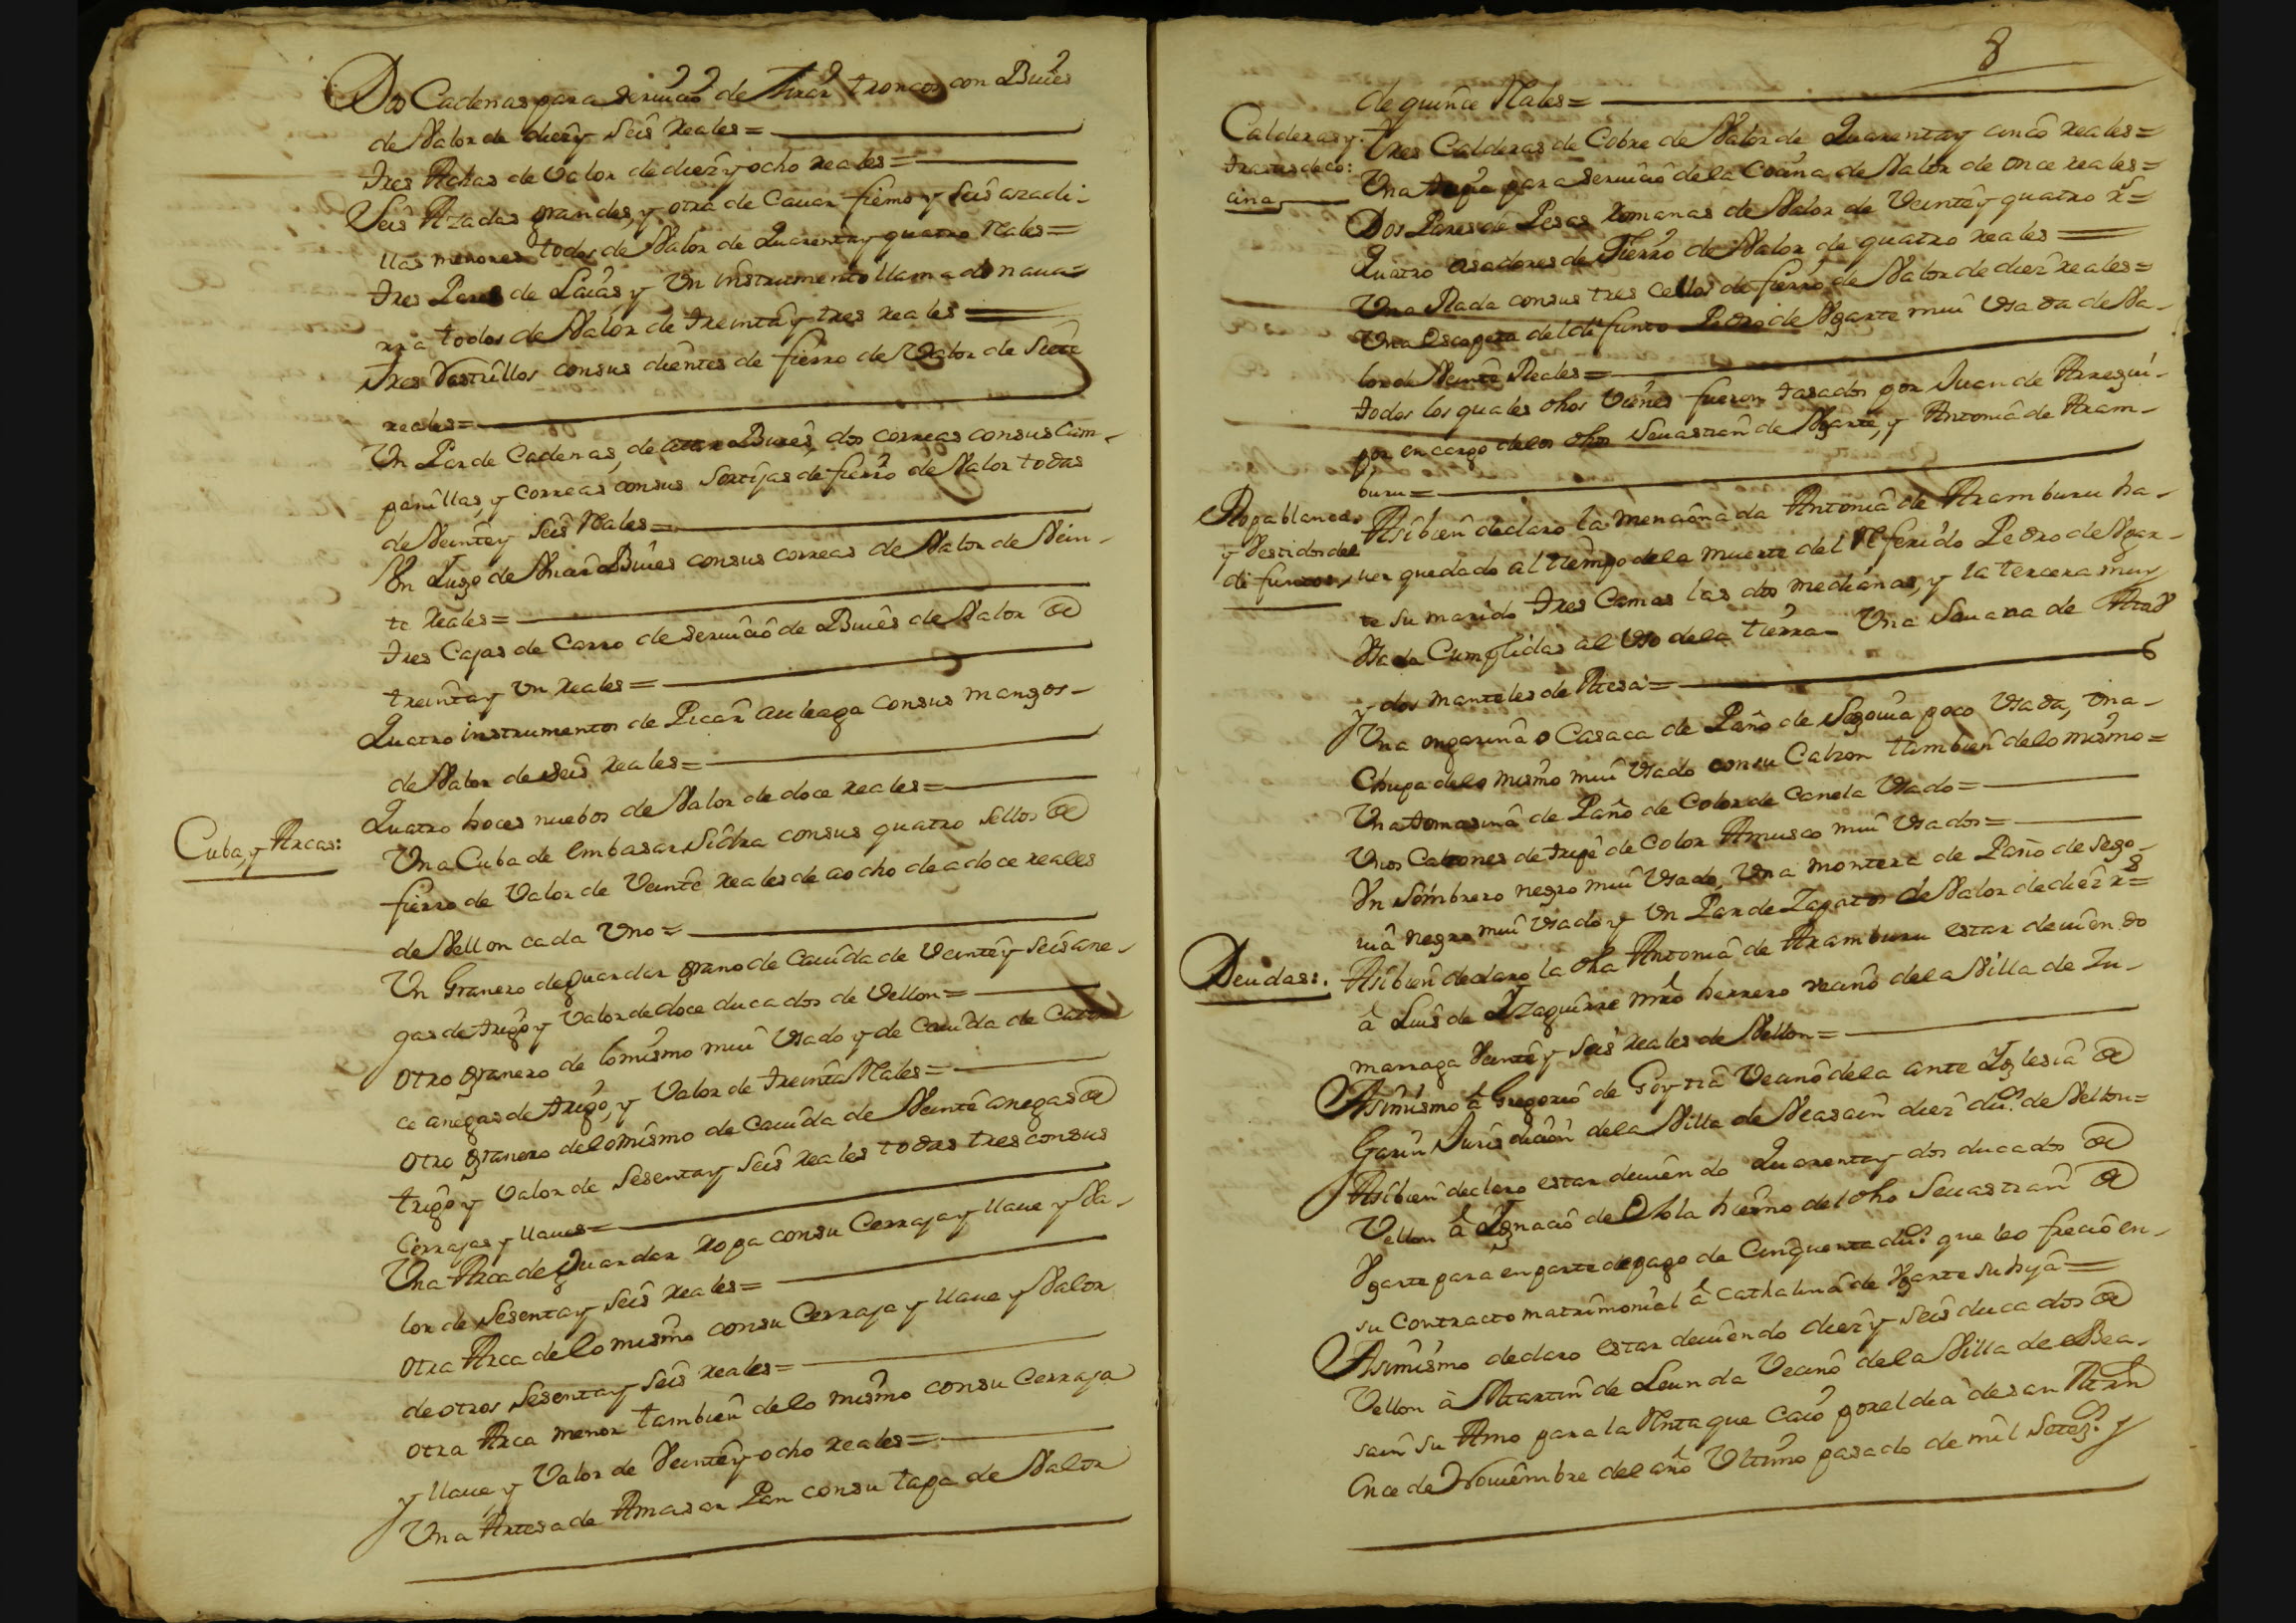 Dos Cadenas para seruicio de Tirar troncos con Bueies
de Valor de diez y seis reales =
tres Achas de Valor de diez y ocho reales =
Seis Azadas grandes, y otra de Cauar fiemo y seis azadi-
llas menores todos de Valor de Quarenta y quatro Reales =
tres Pares de Laias y Vn instrumento llamado naua-
rra todos de Valor de treinta y tres reales =
tres Rastrillos con sus dientes de fierro de Valor de siete
reales =
Vn Par de Cadenas, de atar Bueies, dos correas con sus Cam-
panillas, y correas con sus sortijas de fierro de Valor todas
de Veinte y seis Reales =
Vn Iugo de Vnir Bueies con sus correas de Valor de Vein-
te Reales =
tres Cajas de Carro de seruicio de Bueies de Valor de
treinta y Vn reales =
Quatro instrumentos de Picar auleaga con sus mangos
de Valor de seis reales =
Quatro hoces nuebos de Valor de doce reales =
Cuba, y Arcas:
Vna Cuba de embasar Sidra con sus quatro sellos de
fierro de Valor de Veinte reales de a ocho de a doce reales
de Vellon cada Vno =
Vn Granero de guardar grano de Cauida de Veinte y seis ane-
gas de trigo y Valor de doce ducados de Vellon =
Otro granero de lo mismo mui Vsado y de Cauida de Cator-
ce anegas de trigo, y Valor de treinta Reales =
Otro granero de lo mismo de Cauida de Veinte anegas de
trigo y Valor de sesenta y seis reales todas tres con sus
Cerrajas y llaues =
Vna Arca de guardar ropa con su Cerraja y llaue y Va-
lor de sesenta y seis reales =
Otra Arca de lo mismo con su Cerraja y llaue y Valor
de otros sesenta y seis reales =
Otra Arca menor tambien de lo mismo con su Cerraja
y llaue y Valor de Veinte y ocho reales =
Vna Artesa de Amasar Pan con su tapa de Valor
8
de quince Reales =
Calderas y
trastes de co:
cina
tres Calderas de Cobre de Valor de Quarenta y cinco reales =
Vna para seruicio de la Cocina de Valor de once reales =
Dos Pares de Pesas Romanas de Valor de Veinte y quatro rs =
Quatro asadores de Fierro de Valor de quatro reales =
Vna Rada con sus tres cellos de fierro de Valor de diez reales =
Vna Escopeta del difunto Pedro de Vgarte mui Vsada de Va-
lor de Veinte Reales =
todos los quales dhos Vienes fueron tasados por Juan de Arregui
por encargo de los dhos Seuastian de Vgarte, y Antonia de Aram-
buru =
Ropa blanca
y Vestidos del
difunto
Asi bien declaro la mencionada Antonia de Aramburu ha-
uer quedado al tiempo de la muerte del Referido Pedro de Vgar-
te su marido tres Camas las dos medianas, y la tercera muy
Vsada Cumplidas al Vso de la tierra Vna Sauana de
y dos manteles de Mesa =
Vna ongarina o Casaca de Paño de Segouia poco Vsada, Vna
Chupa de lo mismo mui Vsado con su Calzon tambien de lo mismo =
Vna tomasina de Paño de Color de Canela Vsado =
Vnos Calzones de tripe de Color Amusco mui Vsados =
Vn Sombrero negro mui Vsado, Vna montera de Paño de Sego-
uia negro mui Vsado y Vn Par de Zapatos de Valor de diez rs =
Deudas:
Asi bien declaro la dha Antonia de Aramburu estar deuiendo
â Luis de Yzaguirre mro herrero vecino de la Villa de Zu-
marraga Veinte y seis reales de Vellon =
Asimismo â Gregorio de Goytia Vecino de la ante Yglesia de
Gauin Jurisdicion de la Villa de Veasain diez dus. de Vellon =
Asi bien declaro estar deuiendo Quarenta y dos ducados de
Vellon â Ygnacio de Olola hierno del dho Seuastian de
Vgarte para en parte de pago de Cinquenta dus. que le ofrecio en
su Contracto matrimonial â Cathalina de Vgarte su hija =
Asimismo declaro estar deuiendo diez y seis ducados de
Vellon â Martin de Leunda Vecino de la Villa de Bea-
sain su Amo para la Renta que Caio por el dia de san Mrn
Once de Nouiembre del año Vltimo pasado de mil setezs. y